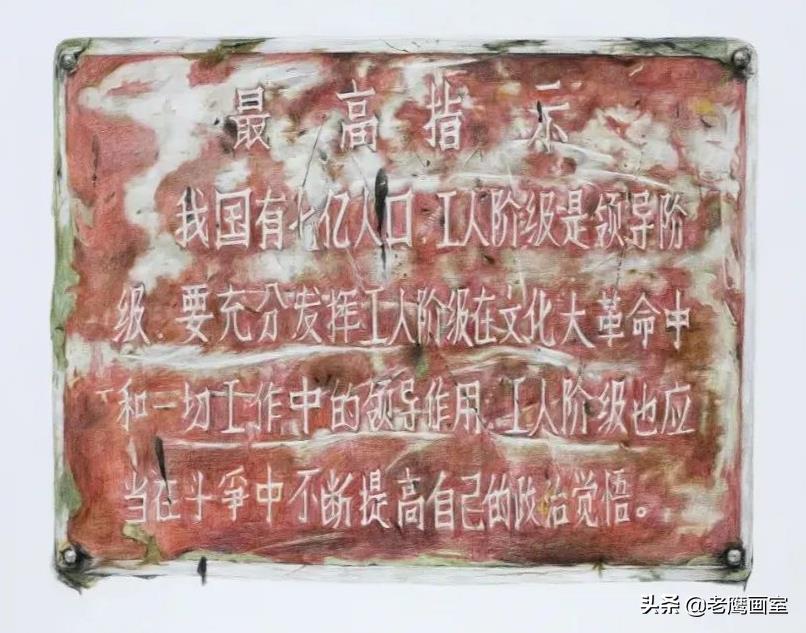 最高指示
我国有七亿人口,工人阶级是领导阶
级.要充分发挥工人阶级在文化大革命中
和一切工作中的领导作用.工人阶级也应
当在斗爭中不断提高自己的政治觉悟。
头条 @老鹰画室